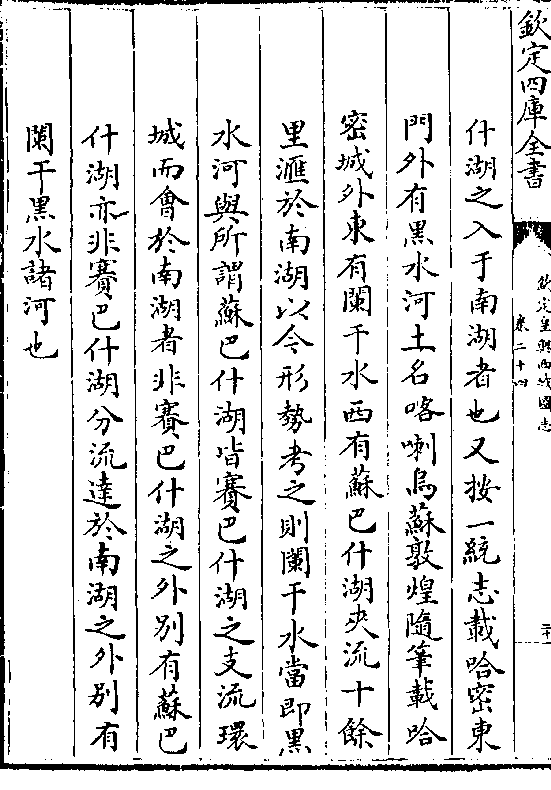 欽定四庫全書
欽定皇輿西域圖志
卷二十四
什湖之入于南湖者也又按一統志載哈密東
門外有黑水河土名喀喇烏蘇敦煌隨筆載哈
密城外東有闌干水西有蘇巴什湖夾流十餘
里滙於南湖以今形勢考之則闌干水當即黑
水河與所謂蘇巴什湖皆賽巴什湖之支流環
城而會於南湖者非賽巴什湖之外別有蘇巴
什湖亦非賽巴什湖分流達於南湖之外別有
闌干黑水諸河也